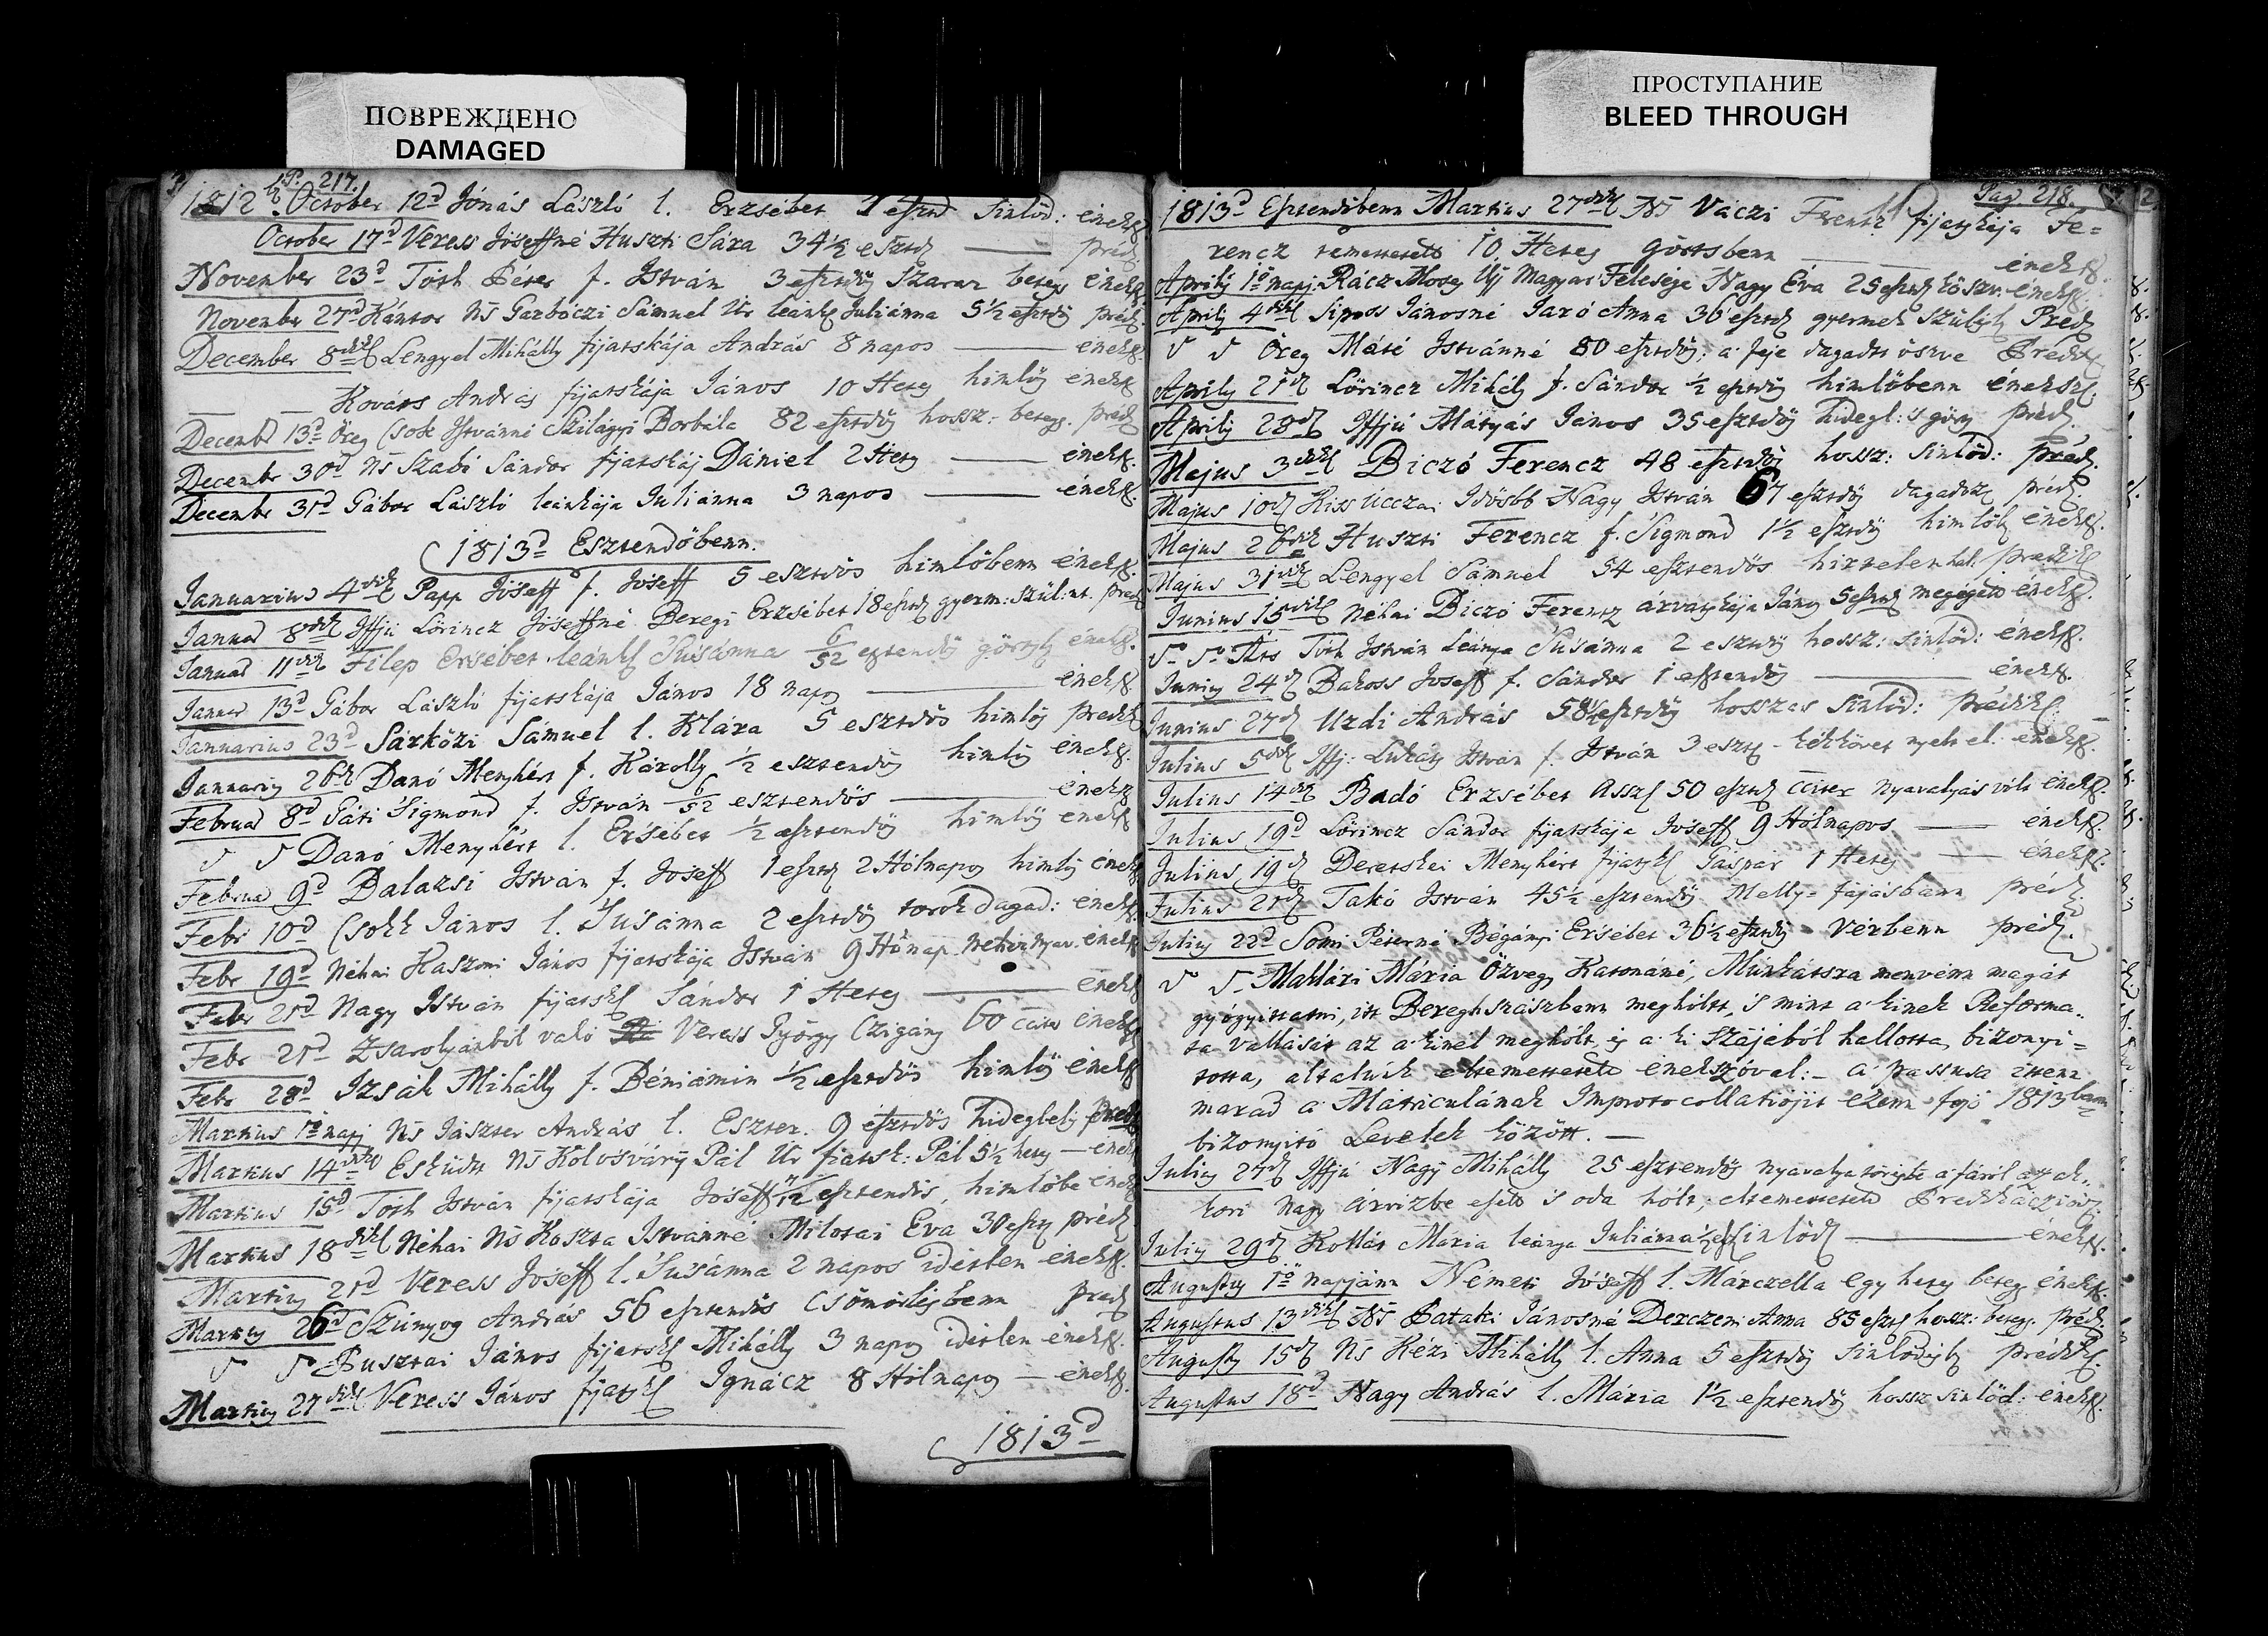 ПОВРЕЖДЕНО
DAMAGED
ПРОСТУПАНИЕ
BLEED THROUGH
P. 217.
1812 October 12d Jónás László l. Erzsébet 1 esztd sinlöd: éneksz
October 17d Veress Jóseffné Huszti Sára 34 1/2 esztd préd.
November 23d Tóth Péter f. István 3 esztdös szaraz beteg éneksz
November 27d Kántor Ns Garbóczi Sámuel Úr leánk Juliánna 5 1/2 esztdös préd.
December 8dik Lengyel Mihálly fijatskája András 8 napos éneksz
Kováts András fijatskája János 10 Hetes himlős éneksz
Decembr 13d Öreg Csok Istvánné Szilágyi Borbála 82 esztdös hossz: betegs. préd
Decembr 30d Ns Szabó Sándor fijatskáj Dániel 2 Hets éneksz.
Decembr 31d Gábor László leánkája Juliánna 3 napos éneksz.
1813d Esztendőbenn.
Januarius 4dik Papp Jóseff f. Jóseff 5 esztdős himlőbenn éneksz.
Januar 8dik Iffjú Lörincz Jóseffné Beregi Erzsébet 18 esztd gyerm: szül: préd
Januar 11dik Filep Ersébet leánk Súsánna 6/52 eztendős görtsb éneksz.
Januar 13d Gábor László fijatskája János 18 napos éneksz.
Januarius 23d Sárközi Sámuel l. Klára 5 esztdős himlős prédk
Januarius 26k Danó Menyhért f. Károlly 1/2 esztendős himlős éneksz.
Februar 8d Páti Sigmond f. István 6/52 esztendős éneksz
Danó Menyhért l. Ersébet 1/2 esztendős himlős éneksz
Februar 9d Balazsi István f. Jóseff 1 esztd 2 Hólnapos himlős éneksz
Febr 10d Csokk János l. Súsánna 2 esztdős torok dagad: éneksz.
Febr 19d Néhai Kaszoni János fijatskája István 9 Hónap. nehéz nyav. éneksz
Febr 21d Nagy István fijatsk Sándor 1 Hetes éneksz
Febr 21d Zsarolyánból való Veress György Czigány 60 éneksz
Febr 28d Izsák Mihálly f. Béniámin 1/2 esztdős himlős éneksz
Martius 1ő napj Ns Jászter András l. Eszter 9 esztdős hideglelős préd
Martius 14dikb Esküdt Ns Kolosváry Pál Úr fiatsk: Pál 5 1/2 hets — éneksz
Martius 15d Tóth István fijatskája Jóseff esztendős, himlőbe éneksz
Martius 18dik Néhai Ns Koszta Istvánné Milotai Éva 30 eszts préd
Martius 21d Veress Jóseff l. Súsánna 2 napos idétlen éneksz.
Martius 26d Szúnyog András 56 esztendős Csömörlésbenn préd
Pusztai János fijatsk Mihálly 3 napos idétlen éneksz.
Martius 27dik Veress János fijatsk Ignácz 8 Hólnapos — éneksz.
1813d
Pag. 218.
1813d Esztendőbenn Martius 27dik Ns Váczi Ferentz fijatskája Fe=
rencz temettetett 10 Hetes görtsbenn éneksz.
Aprilis 1ő napj. Rácz Moses Uj Magyar Felesége Nagy Éva 25 esztd köszv. éneksz.
Aprilis 4dik Siposs Jánosné Jaró Anna 36 esztd gyermek szülésb Préd
Öreg Máté Istvánné 80 esztdős; a feje dagadt öszve Prédk
Aprilis 21d Lörincz Mihály f. Sándor 1/2 esztdős himlőbenn éneksz.
Aprilis 28d Iffjú Mátyás János 35 esztdős hidegl: s görts préd.
Majus 3dik Biczó Ferencz 48 esztdős hossz: sinlőd: préd.
Majus 10d Kiss Ucczai Idősbb Nagy István 67 esztdős dagadts préd.
Majus 26dik Huszti Ferencz f. Sigmond 1 1/2 esztdős himlőb éneksz.
Majus 31dik Lengyel Sámuel 54 esztendős hirtelen hal. prédik
Junius 15dik Néhai Biczó Ferentz árvátskája János 5 esztd megégett éneksz.
Tóth István leánya Súsánna 2 esztdős hossz: sinlőd: éneksz.
Junius 24d Bakoss Joseff f. Sándor 1 esztendős éneksz.
Junius 27d Uzdi András 58 esztdős hosszas sinlőd: prédik.
Julius 5dik Iffj: Lukáts István f. István 3 eszts éneksz.
Julius 14dik Badó Erzsébet Assz 50 esztd nyavalyás vólt éneksz.
Julius 19d Lörincz Sándor fijatskája Jóseff 9 Hólnapos éneksz.
Julius 19d Deretskei Menyhért fijatsk Gáspár 1 Hetes éneksz.
Julius 21d Takó István 45 1/2 esztendős Melly-fájásbann préd.
Julius 22d Somi Péterné Bégányi Ersébet 36 1/2 esztdős Vérbenn préd.
Maklári Mária Özvegy Katonáné, Munkátsra menvénn magát
gyógyittatni, itt Bereghszászbann meghólt, s mint a kinek Reforma..
ta vallását az a kinél meghólt, és a ki szájából hallotta, bizonyi=
totta, általunk eltemettetett énekszóval:- a passusa ittenn
marad a Matriculának Improtocollatiojit ezenn fojó 1813bann
bizonyitó Levelek között. —
Julius 27d Iffjú Nagy Mihálly 25 esztendős nyavalya törvénn a fáról az ak..
kori nagy árvizbe esett s oda hólt, eltemettetett Prédikátzióval.
Julius 29d Kollár Mária leánya Juliánna sinlőd éneksz.
Augustus 1ő napjánn Németi Jóseff l. Márczella egy hetes betegs éneksz.
Augustus 13dik Ns Pataki Jánosné Derczeni Anna 85 eszts hossz: betegs. préd.
Augustus 15d Ns Kézi Mihálly l. Anna 5 esztdős sinlődésb prédik.
Augustus 18d Nagy András l. Mária 1 1/2 esztendős hossz sinlőd: éneksz.